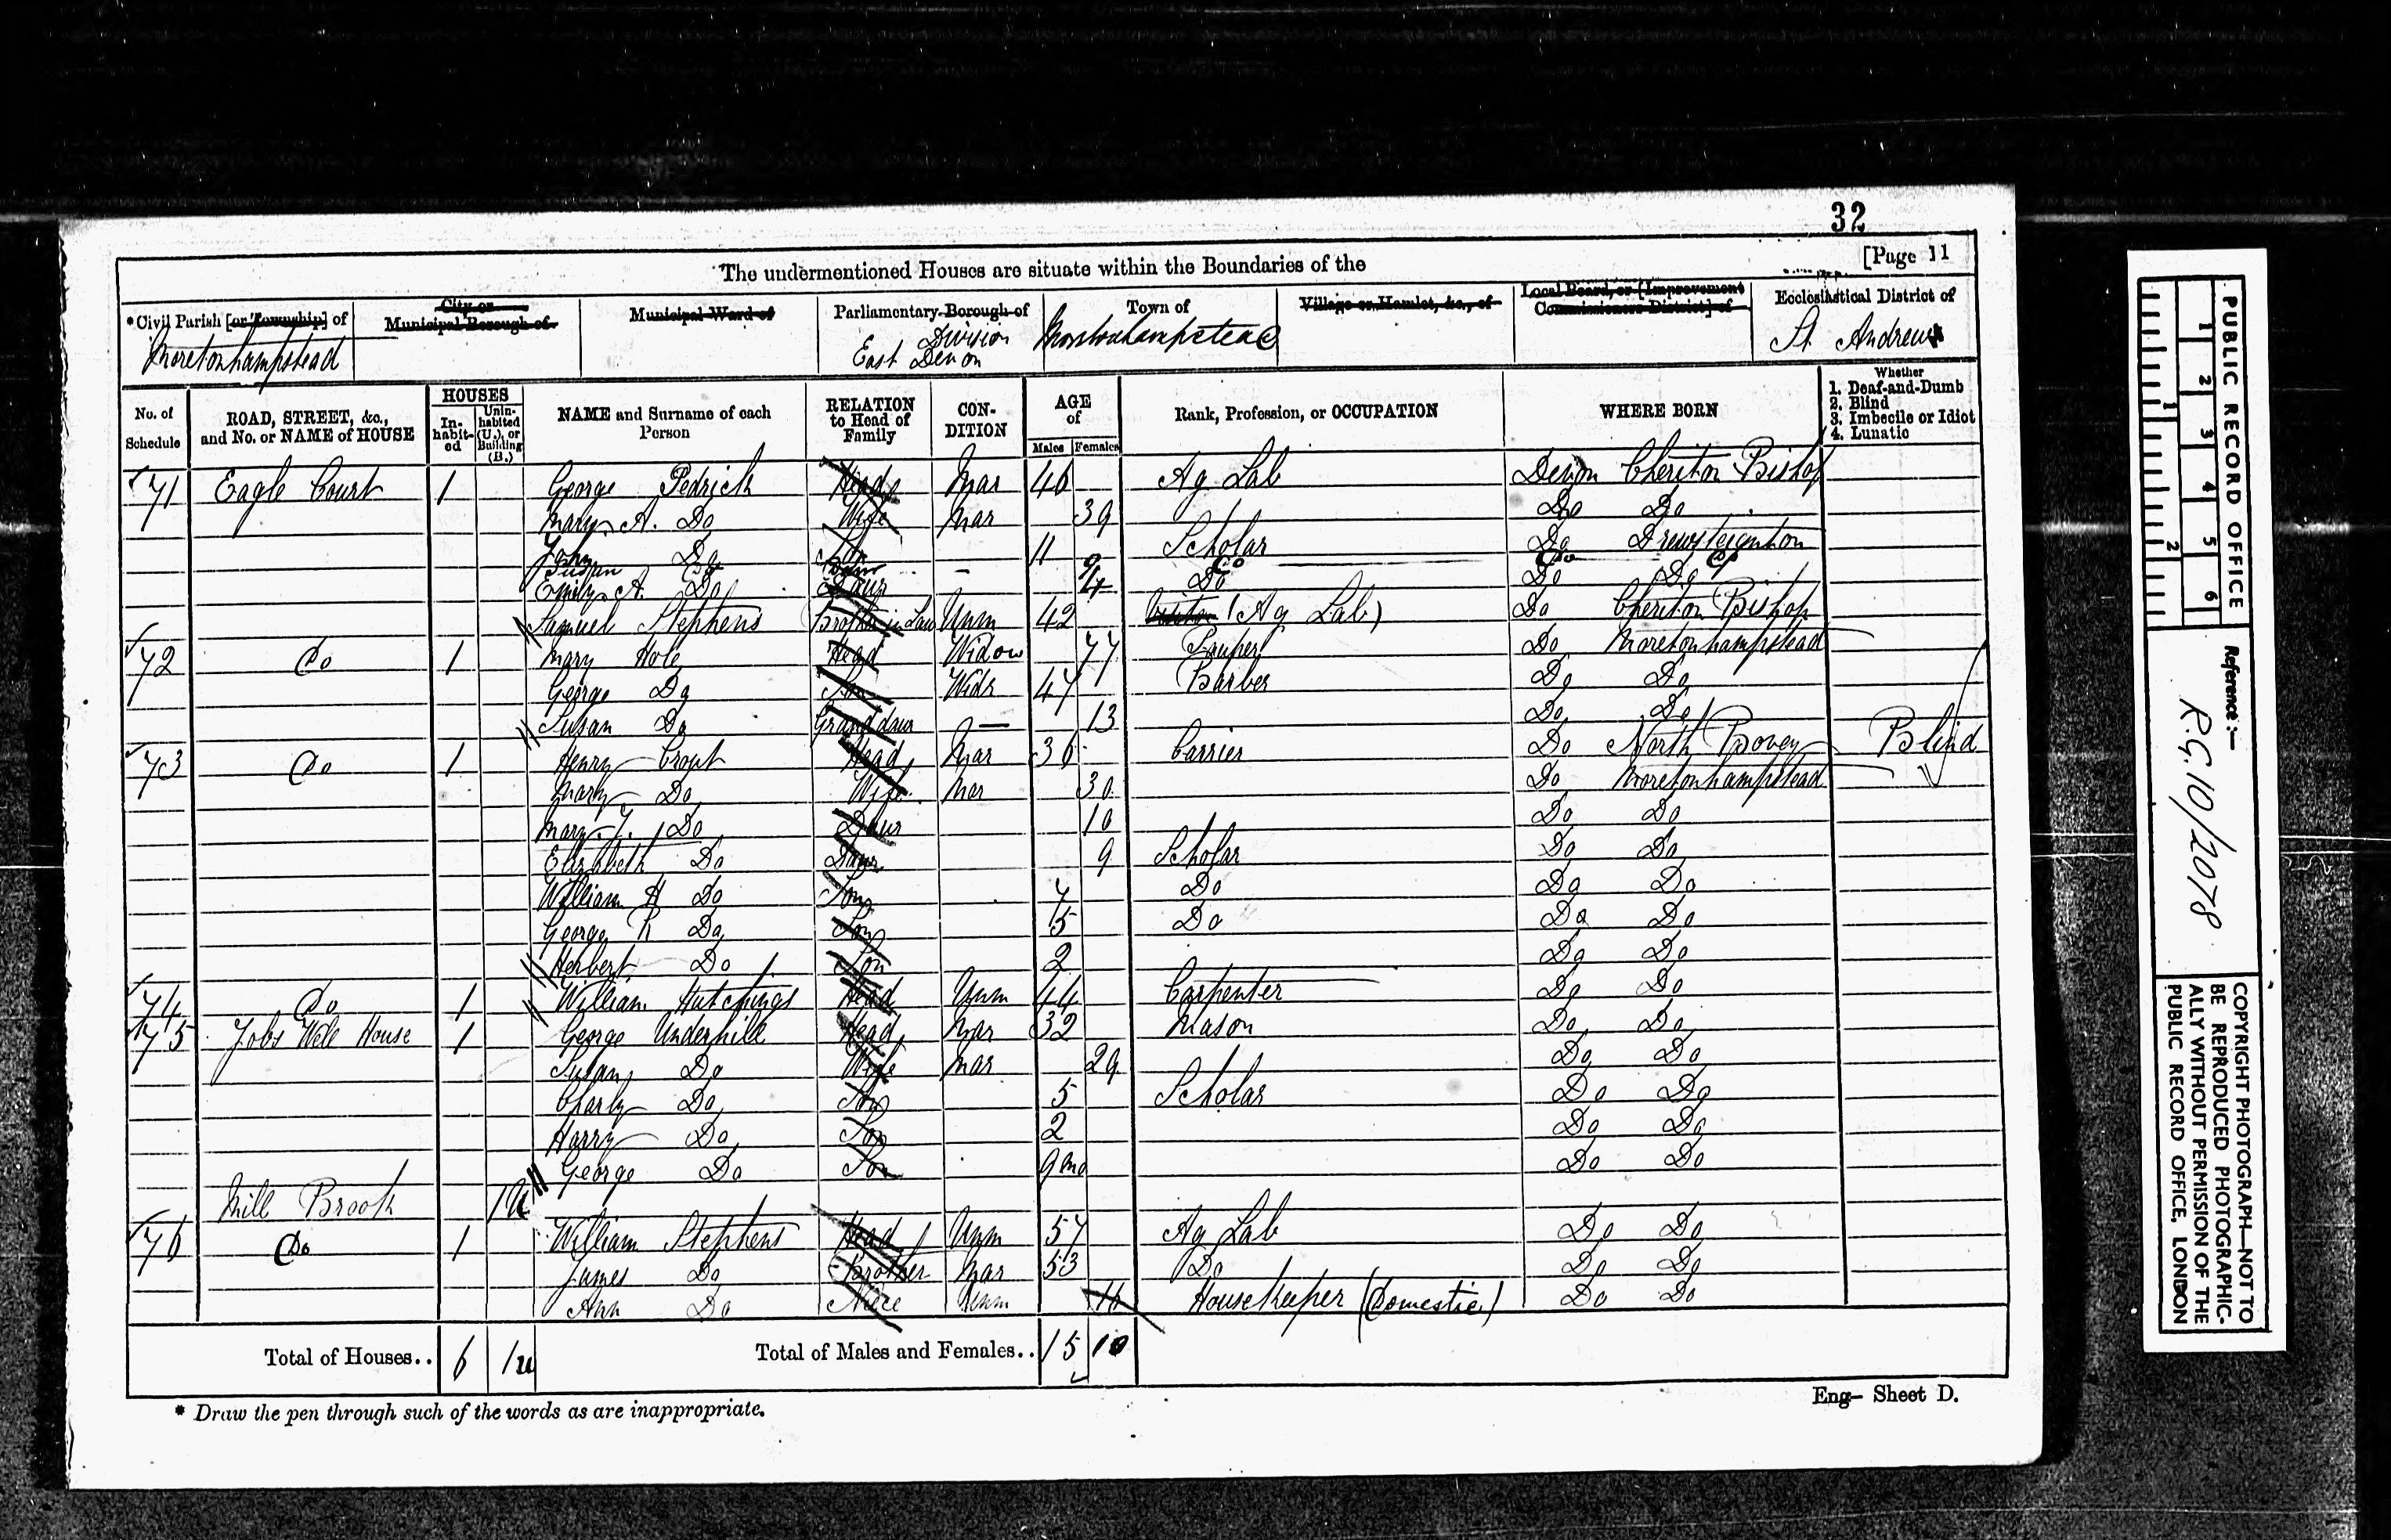 32
[Page 11
The undermentioned Houses are situate within the Boundaries of the
*Civil Parish [or Township] of
City or Municipal Borough of
Municipal Ward of
Parliamentary Borough of
Town of
Village or Hamlet, &c., of
Local Board, or [Improvement Commissioners District] of
Ecclesiastical District of
Moretonhampstead
Division East Devon
Moretonhampstead
St. Andrews
No. of Schedule
ROAD, STREET, &c., and No. or NAME of HOUSE
HOUSES
In-habit-ed
Unin-habited (U.), or Building (B.)
NAME and Surname of each Person
RELATION to Head of Family
CON-DITION
AGE of
Males
Females
Rank, Profession, or OCCUPATION
WHERE BORN
Whether
1. Deaf-and-Dumb
2. Blind
3. Imbecile or Idiot
4. Lunatic
71 Eagle Court 1 George Pedrick Head Mar 46 Ag Lab Devon Cheriton Bishop
Mary A. Do Wife Mar 39 Do Do
John Do Son 11 Scholar Do Drewsteignton
Susan Do Daur 9 Do Do Do
Emily A. Do Daur 4 Do Do Do
Samuel Stephens Brother in Law Unm 42 (Ag Lab) Do Cheriton Bishop
72 Do 1 Mary Hole Head Widow 77 Pauper Do Moretonhampstead
George Do Son Widr 47 Barber Do Do
Susan Do Grand daur — 13 Do Do
73 Do 1 Henry Head Mar 36 Carrier Do North Bovey Blind
Mary Do Wife Mar 30 Do Moretonhampstead
Mary J. Do Daur 10 Do Do
Elizabeth Do Daur 9 Scholar Do Do
William H Do Son 7 Do Do Do
George R Do Son 5 Do Do Do
Herbert Do Son 2 Do Do
74 Do 1 William Hutchings Head Unm 44 Carpenter Do Do
75 Jobs Well House 1 George Underhill Head Mar 32 Mason Do Do
Susan Do Wife Mar 29 Do Do
Charly Do Son 5 Scholar Do Do
Harry Do Son 2 Do Do
George Do Son 9 mo Do Do
Mill Brook 1U
76 Do 1 William Stephens Head Unm 57 Ag Lab Do Do
James Do Brother Mar 53 Do Do Do
Ann Do Niece Unm 16 Housekeeper (Domestic) Do Do
Total of Houses.. 6 1u Total of Males and Females.. 15 10
* Draw the pen through such of the words as are inappropriate.
Eng— Sheet D.
PUBLIC RECORD OFFICE
1 2 3 4 5 6
1 2
Reference:—
R.G. 10/2078
COPYRIGHT PHOTOGRAPH—NOT TO
BE REPRODUCED PHOTOGRAPHIC-
ALLY WITHOUT PERMISSION OF THE
PUBLIC RECORD OFFICE, LONDON